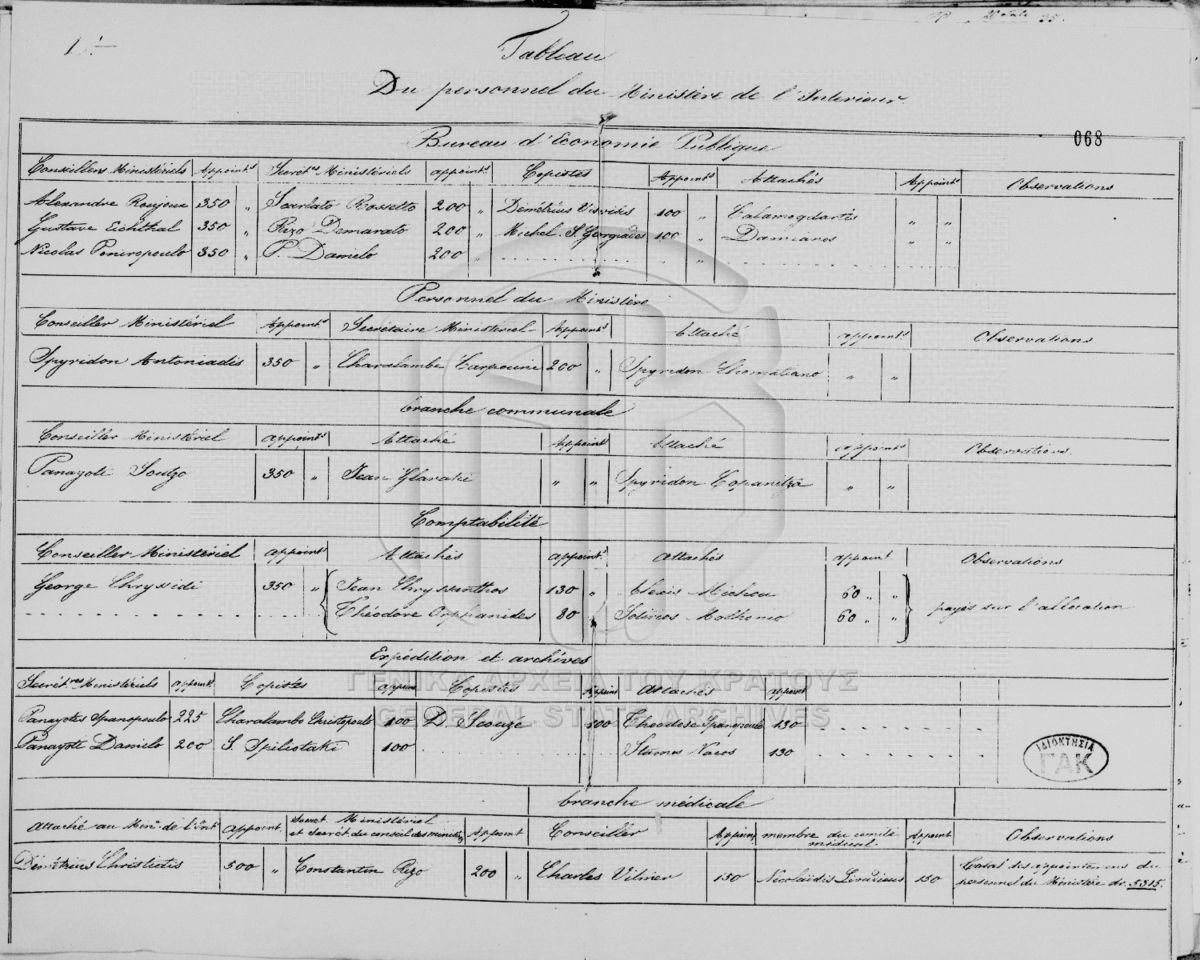 Tableau
Du personnel du Ministère de l'Interieur
068
Bureau d'Economie Publique
Conseillers Ministériels Appoint.ts Secrét.res Ministériels appoint.ts Copistes Appoint.ts Attachés Appoint.ts Observations
Alexandre Roujoux 350 " Scarlato Rossetto 200 " Démétrius 100 " " "
Gustave Eichthal 350 " Rizo Demarato 200 " Michel S. Georgiades 100 " Damianos " "
Nicolas Poniropoulo 350 " P. Damelo 200
Personnel du Ministère
Conseiller Ministériel Appoint.ts Secrétaire Ministériel Appoint.ts Attaché appoint.ts Observations
Spyridon Antoniadis 350 " Charalambe 200 " Spyridon " "
branche communale
Conseiller Ministériel appoint.ts Attaché Appoint Attaché appoint.ts Observations.
Panayoti Soutzo 350 " Jean Glaraki " " Spyridon " "
Comptabilité
Conseiller Ministériel appoint.ts Attachés appoint.ts attachés appoint Observations
George Chryssidi 350 " Jean Chryssanthos 130 " Alexis 60 " "
Théodore Orphanides 80 60 " " payés sur l'allocation
Expédition et archives
Secrét.res Ministériels appoint Copistes appoint Copistes Appoint Attachés appoint
Panayotes Spanopoulo 225 Charalambo Christopoulo 100 D. Scouzé 100 Théodose Spanopoulo 130
Panayoti Danielo 200 S. Spiliotaki 100 Stamos 130
ΓΕΝΙΚΑ ΑΡΧΕΙΑ ΤΟΥ ΚΡΑΤΟΥΣ
GENERAL STATE ARCHIVES
ΙΔΙΟΚΤΗΣΙΑ
ΓΑΚ
branche médicale
Attaché au Min.re de l'Int. appoint Secret Ministériel et Secrét. du conseil des ministres Appoint Conseiller Appoint membre du comité médical. Appoint Observations
Démétrius Christictis 500 " Constantin Rizo 200 " Charles 150 Nicolaïdis 150 Total des appointemens du
personnel du Ministère dr. 5315.